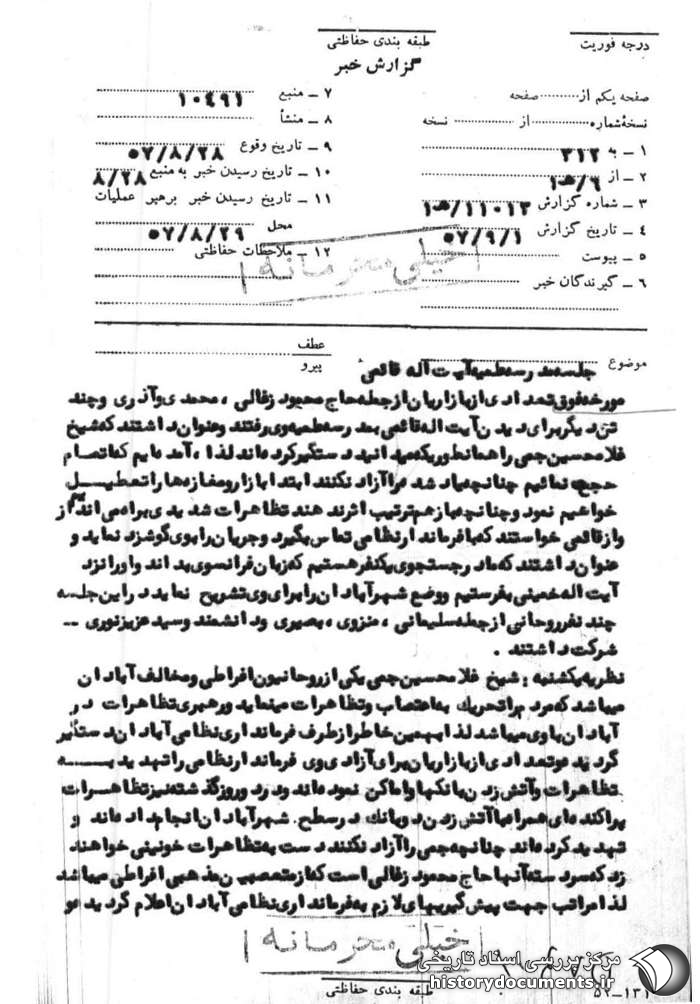 درجه فوریت
طبقه بندی حفاظتی
گزارش خبر
صفحه یکم از ........ صفحه
نسخهٔ شماره ........ از ........ نسخه
۱ ــ به ۳۱۲
۲ ــ از ۶/ه‍۱
۳ ــ شماره گزارش ۱۱۰۱۲/ه‍۱
۴ ــ تاریخ گزارش ۵۷/۹/۱
۵ ــ پیوست
۶ ــ گیرندگان خبر
۷ ــ منبع ۱۰۴۹۱
۸ ــ منشأ
۹ ــ تاریخ وقوع ۵۷/۸/۲۸
۱۰ ــ تاریخ رسیدن خبر به منبع ۸/۲۸
۱۱ ــ تاریخ رسیدن خبر برهبر عملیات
محل ۵۷/۸/۲۹
۱۲ ــ ملاحظات حفاظتی
خیلی محرمانه
عطف
پیرو
موضوع جلسه مدرسه علمیه آیت اله قائمی
مورخه فوق تعدادی از بازاریان از جمله حاج محمود زفالی ، محمدی و آذری و چند
تن دیگر برای دیدن آیت اله قائمی بمدرسه علمیه وی رفتند و عنوان داشتند که شیخ
غلامحسین جمی را همانطوریکه میدانید دستگیر کرده اند لذا ، آمده ایم که اتمام
حجه نمائیم چنانچه یاد شده را آزاد نکنند ابتدا بازار و مغازه ها را تعطیل
خواهیم نمود و چنانچه باز هم ترتیب اثر ندهند تظاهرات شدیدی براه می اندازیم
و از قائمی خواستند که با فرماندار نظامی تماس بگیرد و جریان را بوی گوشزد نماید و
عنوان داشتند که ما در جستجوی یکنفر هستیم که زبان فرانسوی بداند و او را نزد
آیت اله خمینی بفرستیم و وضع شهر آبادان را برای وی تشریح نماید در این جلسه
چند نفر روحانی از جمله سلیمانی ، منزوی ، بصیری و دانشمند و سید عزیز نوری ــ
شرکت داشتند .
نظریه یکشنبه : شیخ غلامحسین جمی یکی از روحانیون افراطی و مخالف آبادان
میباشد که مردم را تحریک به اعتصاب و تظاهرات مینماید و رهبری تظاهرات در
آبادان با وی میباشد لذا بهمین خاطر از طرف فرمانداری نظامی آبادان دستگیر
گردید و تعدادی از بازاریان برای آزادی وی فرماندار نظامی را تهدید بـــه
تظاهرات و آتش زدن بانکها و اماکن نموده اند و در دو روز گذشته نیز تظاهرات
پراکنده ای همراه با آتش زدن دو بانک در سطح شهر آبادان انجام داده اند و
تهدید کرده اند چنانچه جمی را آزاد نکنند دست به تظاهرات خونینی خواهند
زد که سردسته آنها حاج محمود زفالی است که از متعصبین مذهبی افراطی میباشد
لذا مراتب جهت پیش گیریهای لازم به فرمانداری نظامی آبادان اعلام گردید
خیلی محرمانه
طبقه بندی حفاظتی
مرکز بررسی اسناد تاریخی
historydocuments.ir